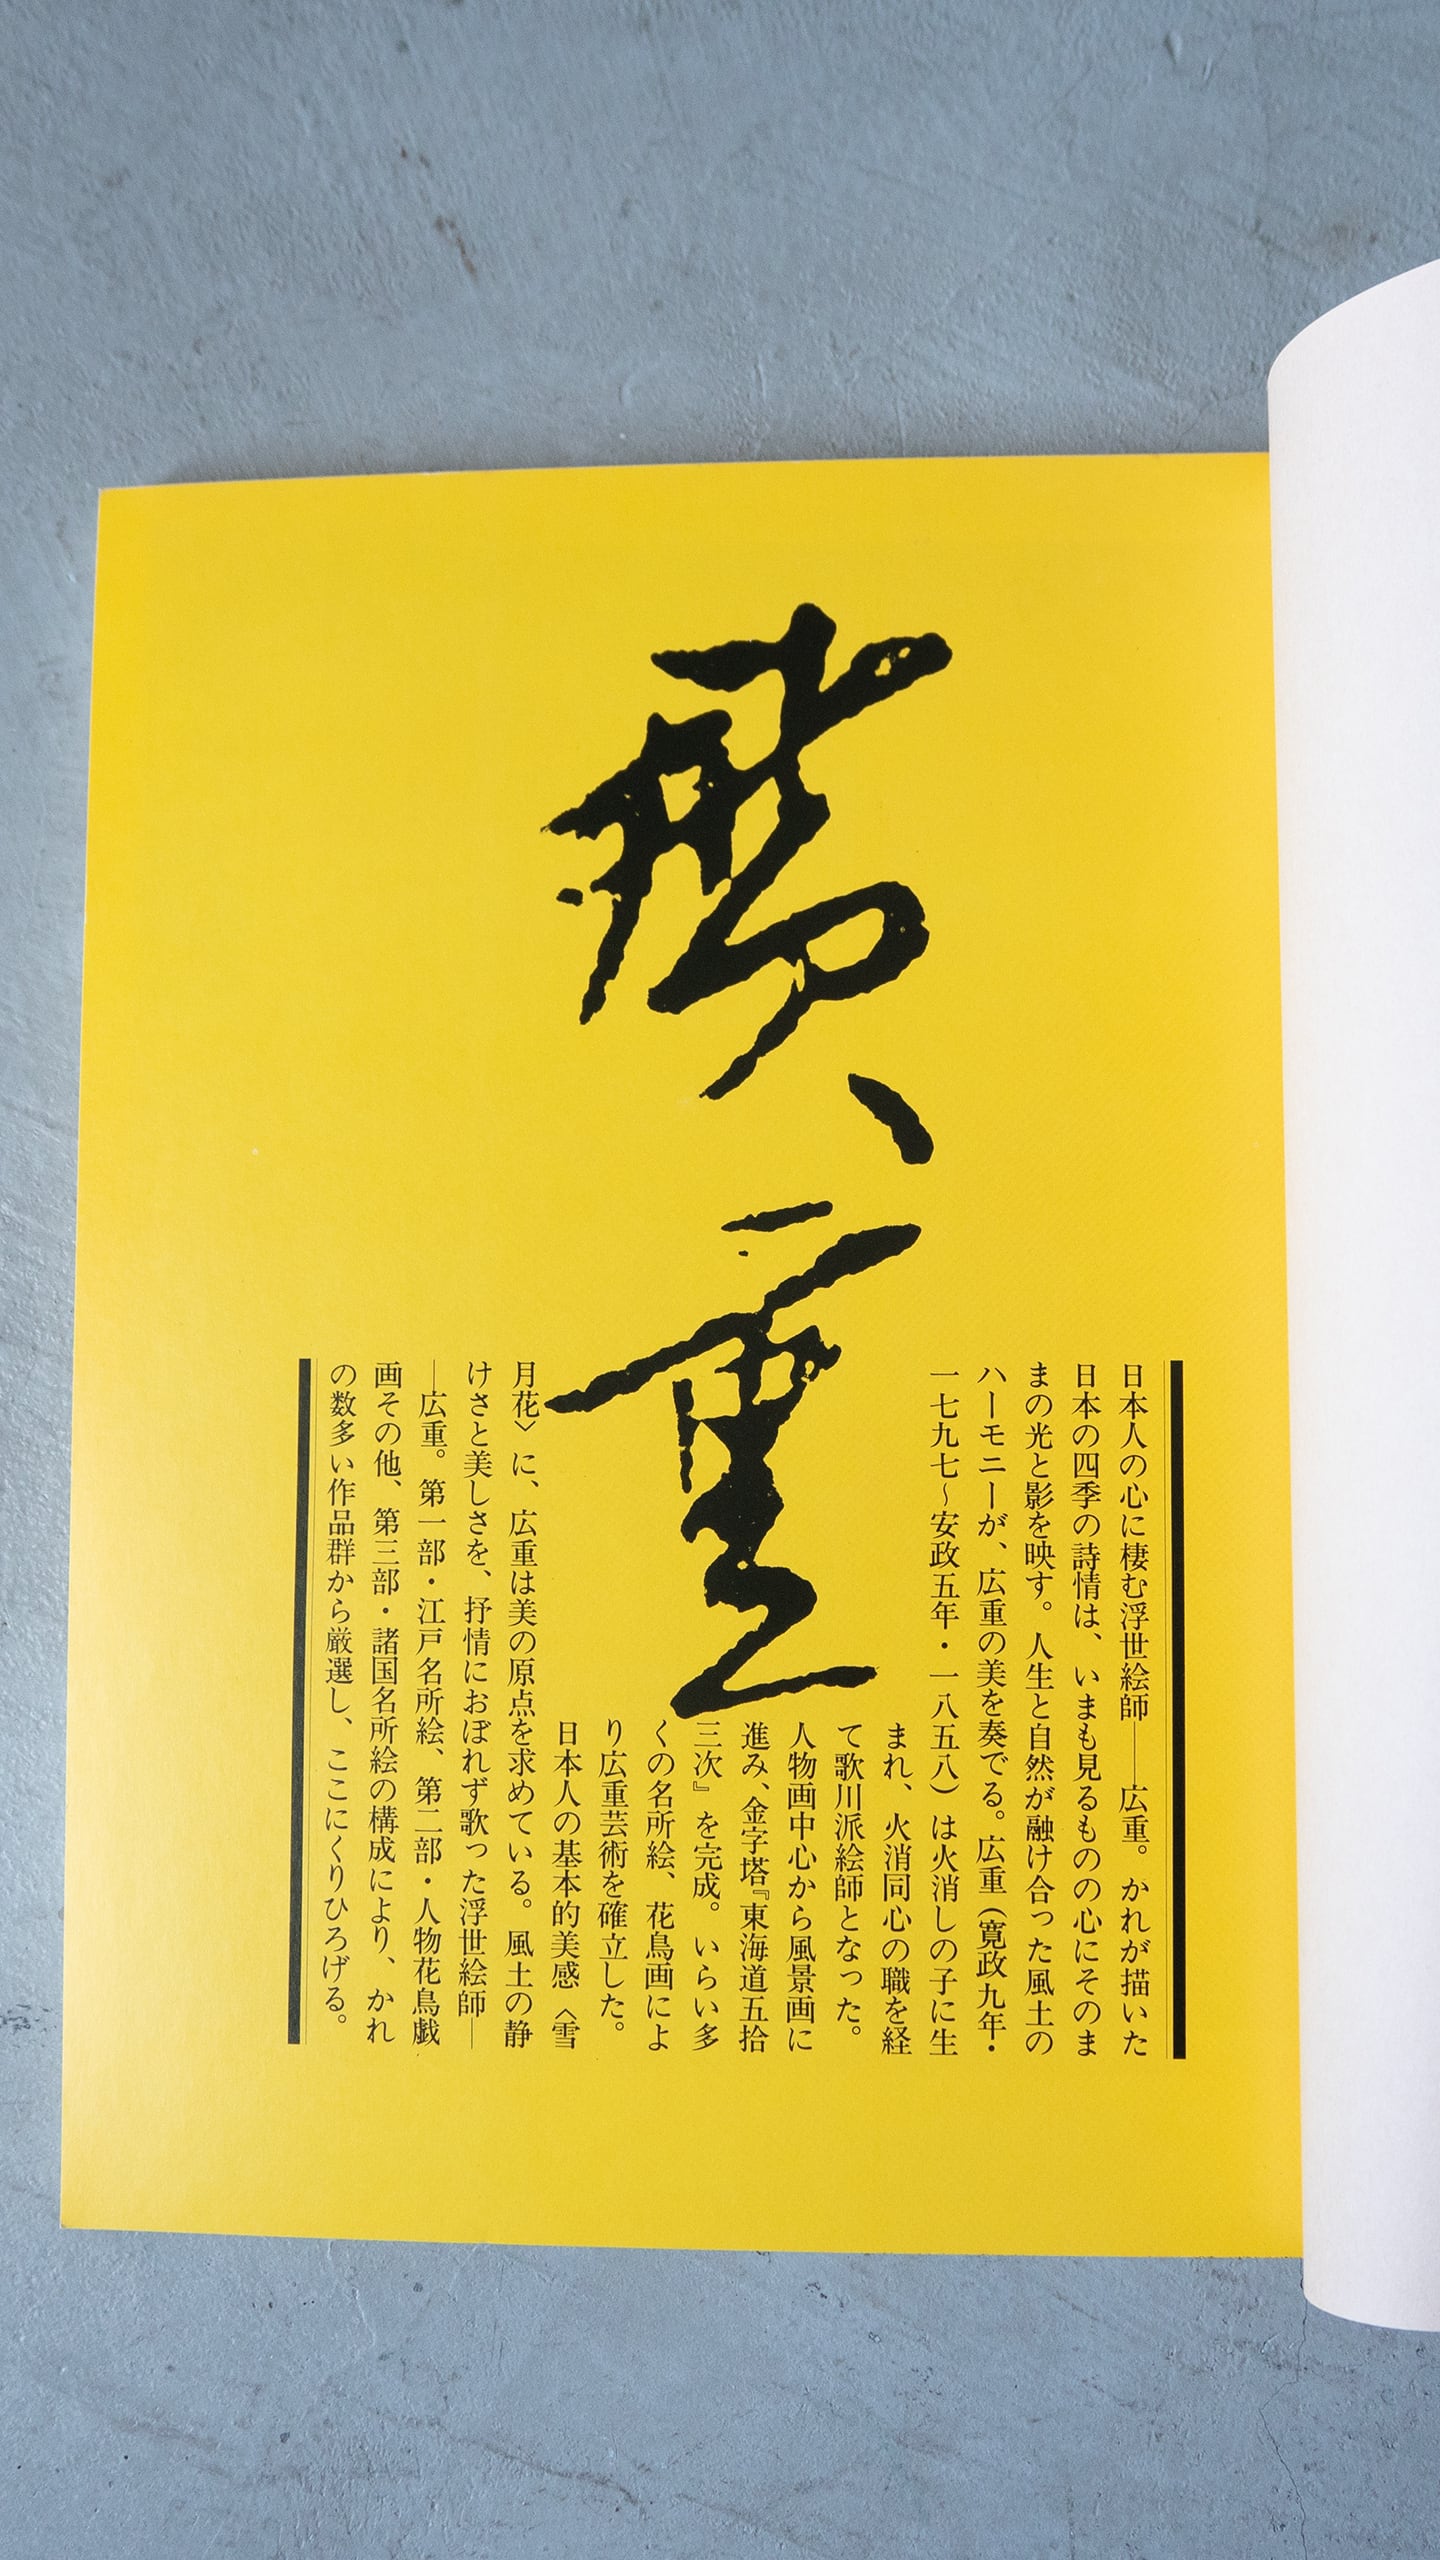 廣重
日本人の心に棲む浮世絵師――広重。かれが描いた
日本の四季の詩情は、いまも見るものの心にそのま
まの光と影を映す。人生と自然が融け合った風土の
ハーモニーが、広重の美を奏でる。広重（寛政九年・
一七九七～安政五年・一八五八）は火消しの子に生
まれ、火消同心の職を経
て歌川派絵師となった。
人物画中心から風景画に
進み、金字塔『東海道五拾
三次』を完成。いらい多
くの名所絵、花鳥画によ
り広重芸術を確立した。
日本人の基本的美感〈雪
月花〉に、広重は美の原点を求めている。風土の静
けさと美しさを、抒情におぼれず歌った浮世絵師―
―広重。第一部・江戸名所絵、第二部・人物花鳥戯
画その他、第三部・諸国名所絵の構成により、かれ
の数多い作品群から厳選し、ここにくりひろげる。